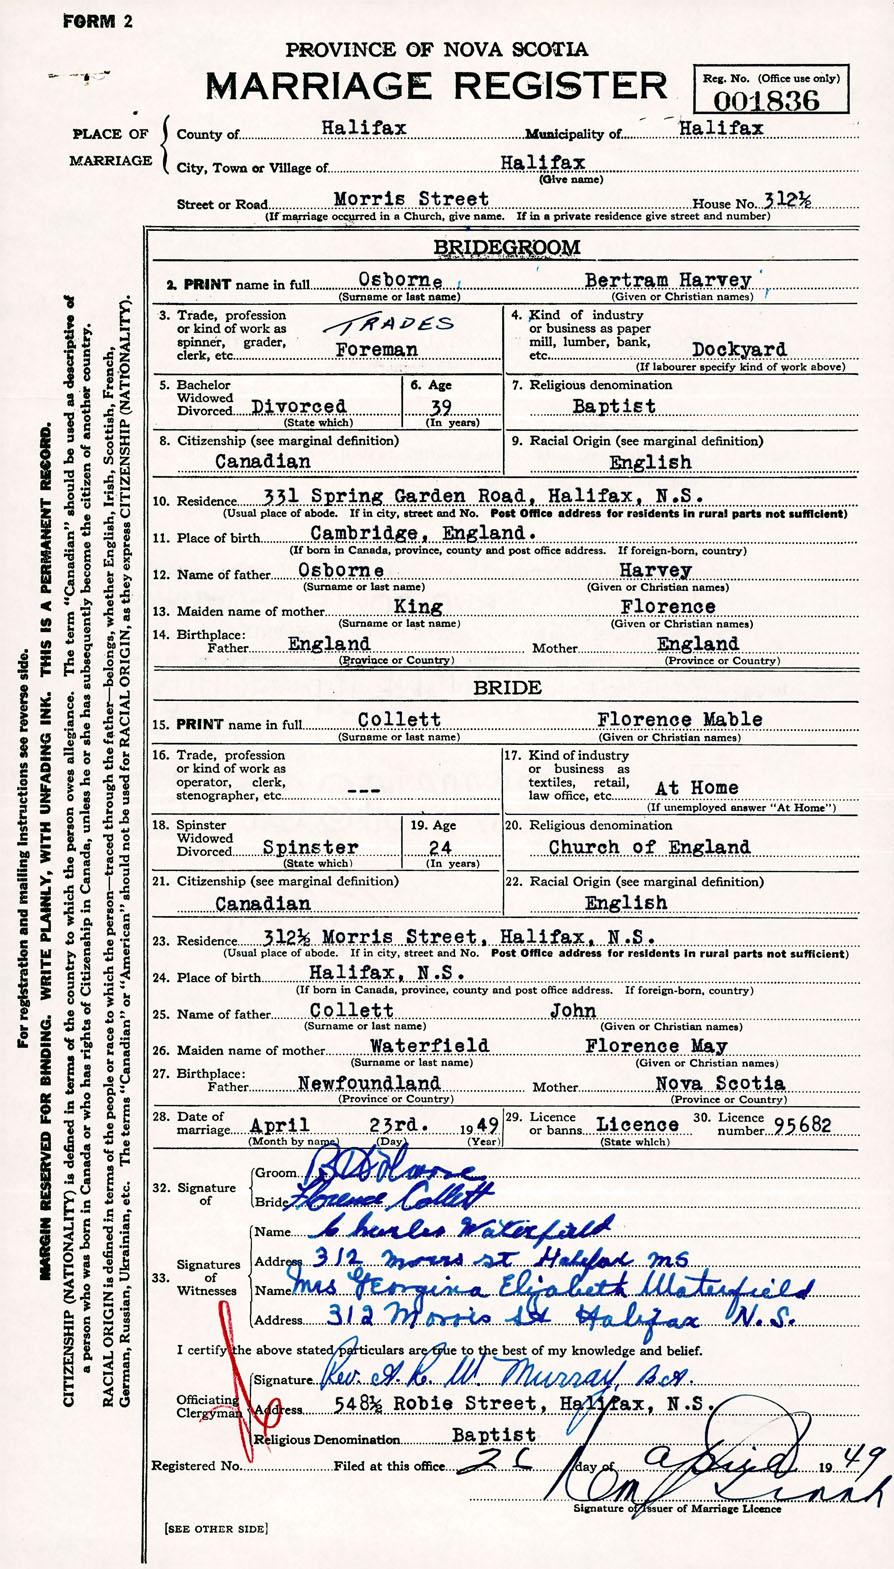 FORM 2
PROVINCE OF NOVA SCOTIA
MARRIAGE REGISTER
Reg. No. (Office use only)
001836
PLACE OF MARRIAGE
County of Halifax Municipality of Halifax
City, Town or Village of Halifax
(Give name)
Street or Road Morris Street House No. 312½
(If marriage occurred in a Church, give name. If in a private residence give street and number)
BRIDEGROOM
2. PRINT name in full Osborne Bertram Harvey
(Surname or last name) (Given or Christian names)
3. Trade, profession or kind of work as spinner, grader, clerk, etc. TRADES Foreman
4. Kind of industry or business as paper mill, lumber, bank, etc. Dockyard
(If labourer specify kind of work above)
5. Bachelor Widowed Divorced Divorced
(State which)
6. Age 39
(In years)
7. Religious denomination
Baptist
8. Citizenship (see marginal definition)
Canadian
9. Racial Origin (see marginal definition)
English
10. Residence 331 Spring Garden Road, Halifax, N.S.
(Usual place of abode. If in city, street and No. Post Office address for residents in rural parts not sufficient)
11. Place of birth Cambridge, England.
(If born in Canada, province, county and post office address. If foreign-born, country)
12. Name of father Osborne Harvey
(Surname or last name) (Given or Christian names)
13. Maiden name of mother King Florence
(Surname or last name) (Given or Christian names)
14. Birthplace:
Father England Mother England
(Province or Country) (Province or Country)
BRIDE
15. PRINT name in full Collett Florence Mable
(Surname or last name) (Given or Christian names)
16. Trade, profession or kind of work as operator, clerk, stenographer, etc. ---
17. Kind of industry or business as textiles, retail, law office, etc. At Home
(If unemployed answer "At Home")
18. Spinster Widowed Divorced Spinster
(State which)
19. Age 24
(In years)
20. Religious denomination
Church of England
21. Citizenship (see marginal definition)
Canadian
22. Racial Origin (see marginal definition)
English
23. Residence 312½ Morris Street, Halifax, N.S.
(Usual place of abode. If in city, street and No. Post Office address for residents in rural parts not sufficient)
24. Place of birth Halifax, N.S.
(If born in Canada, province, county and post office address. If foreign-born, country)
25. Name of father Collett John
(Surname or last name) (Given or Christian names)
26. Maiden name of mother Waterfield Florence May
(Surname or last name) (Given or Christian names)
27. Birthplace:
Father Newfoundland Mother Nova Scotia
(Province or Country) (Province or Country)
28. Date of marriage April 23rd. 1949
(Month by name) (Day) (Year)
29. Licence or banns Licence
(State which)
30. Licence number 95682
32. Signature of
Groom B Osborne
Bride Florence Collett
33. Signatures of Witnesses
Name Charles Waterfield
Address 312 Morris St Halifax NS
Name Mrs Georgina Elizabeth Waterfield
Address 312 Morris St Halifax N.S.
I certify the above stated particulars are true to the best of my knowledge and belief.
Officiating Clergyman
Signature Rev. A. R. W. Murray, B.A.
Address 548½ Robie Street, Halifax, N.S.
Religious Denomination Baptist
Registered No. Filed at this office 26 day of April 1949
Signature of Issuer of Marriage Licence
[SEE OTHER SIDE]
For registration and mailing instructions see reverse side.
MARGIN RESERVED FOR BINDING. WRITE PLAINLY, WITH UNFADING INK. THIS IS A PERMANENT RECORD.
CITIZENSHIP (NATIONALITY) is defined in terms of the country to which the person owes allegiance. The term "Canadian" should be used as descriptive of
a person who was born in Canada or who has rights of Citizenship in Canada, unless he or she has subsequently become the citizen of another country.
RACIAL ORIGIN is defined in terms of the people or race to which the person—traced through the father—belongs, whether English, Irish, Scottish, French,
German, Russian, Ukrainian, etc. The terms "Canadian" or "American" should not be used for RACIAL ORIGIN, as they express CITIZENSHIP (NATIONALITY).